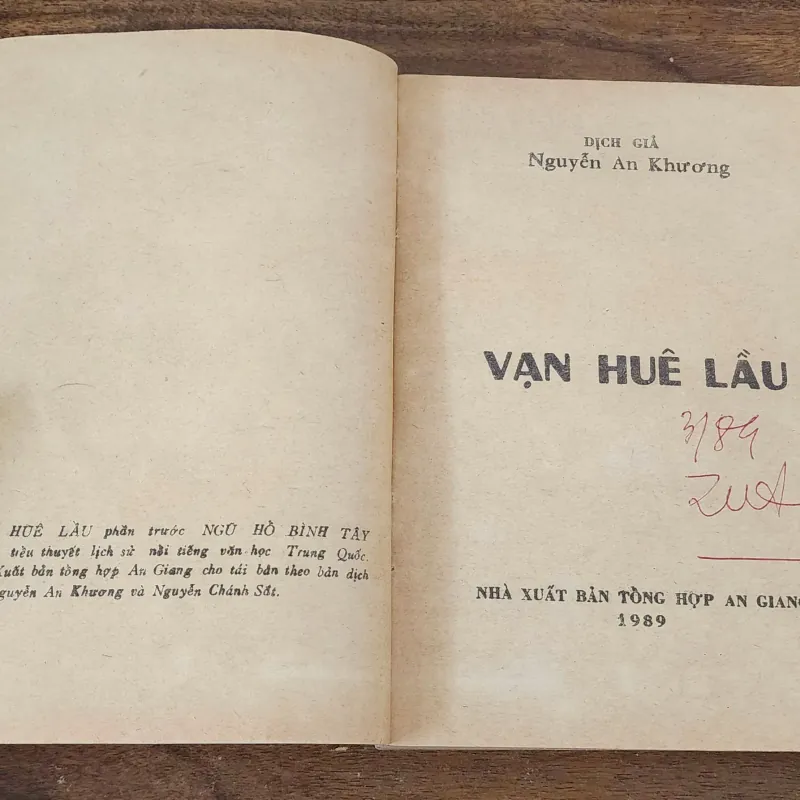 HUÊ LẦU phần trước NGŨ HỔ BÌNH TÂY
tiểu thuyết lịch sử nổi tiếng văn học Trung Quốc.
Xuất bản tổng hợp An Giang cho tái bản theo bản dịch
Nguyễn An Khương và Nguyễn Chánh Sắt.
DỊCH GIẢ
Nguyễn An Khương
VẠN HUÊ LẦU
3/89
NHÀ XUẤT BẢN TỔNG HỢP AN GIANG
1989